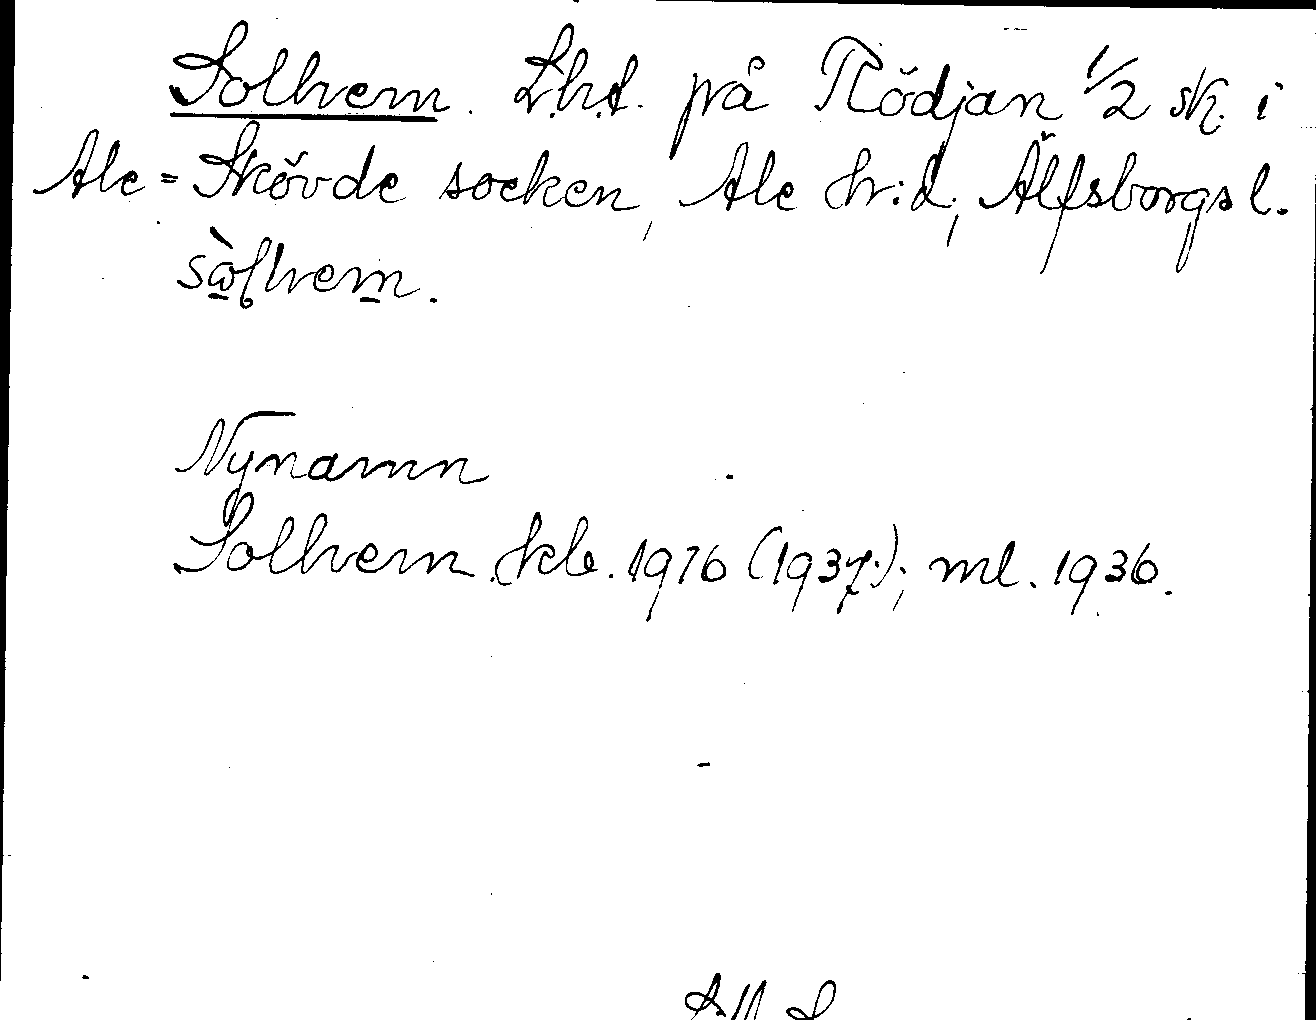 Solhem. Lht. på Rödjan 1/2 sk. i
Ale=Skövde socken, Ale hr:d, Älfsborgs l.
Nynamn
Solhem. kb. 1916 (1937); ml. 1936.